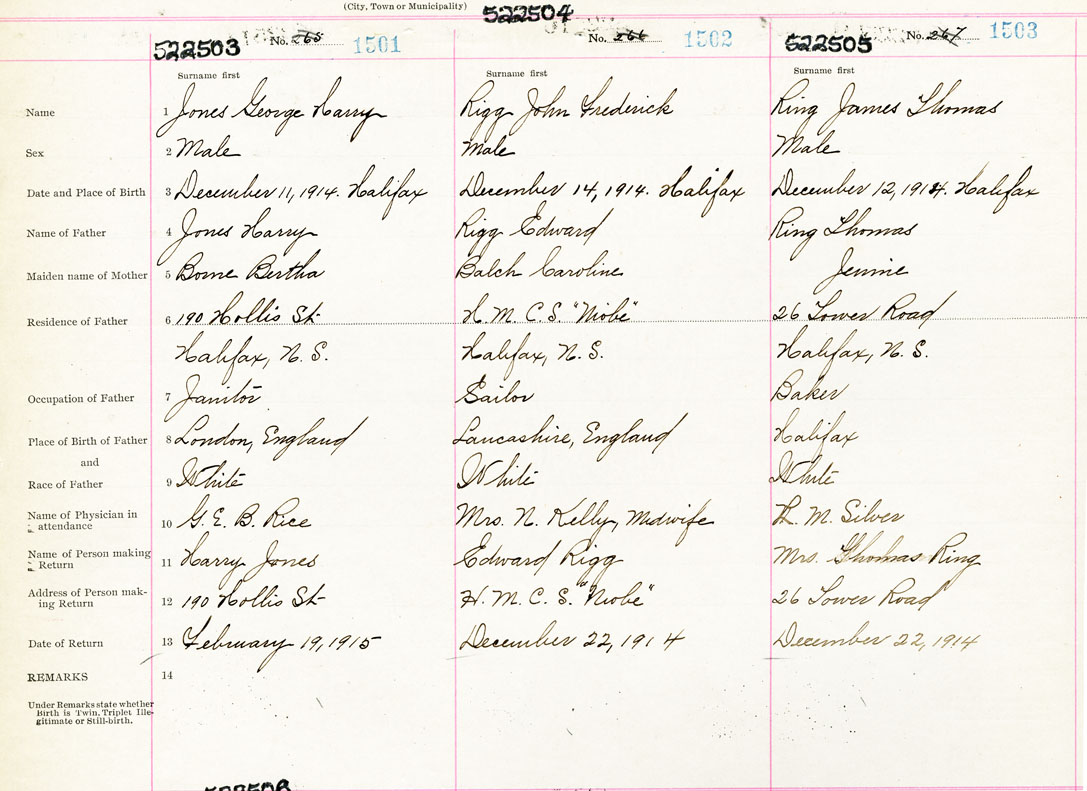 (City, Town or Municipality)
522503 No. 265 1501
522504 No. 266 1502
522505 No. 267 1503
Surname first Surname first Surname first
Name 1 Jones George Harry Rigg John Frederick Ring James Thomas
Sex 2 Male Male Male
Date and Place of Birth 3 December 11, 1914. Halifax December 14, 1914. Halifax December 12, 1914. Halifax
Name of Father 4 Jones Harry Rigg Edward Ring Thomas
Maiden name of Mother 5 Borne Bertha Balch Caroline Jennie
Residence of Father 6 190 Hollis St. H. M. C. S. "Niobe" 26 Lower Road
Halifax, N. S. Halifax, N. S. Halifax, N. S.
Occupation of Father 7 Janitor Sailor Baker
Place of Birth of Father 8 London, England Lancashire, England Halifax
and
Race of Father 9 White White White
Name of Physician in
attendance 10 G. E. B. Rice Mrs. N. Kelly, Midwife R. M. Silver
Name of Person making
Return 11 Harry Jones Edward Rigg Mrs. Thomas Ring
Address of Person mak-
ing Return 12 190 Hollis St. H. M. C. S. "Niobe" 26 Lower Road
Date of Return 13 February 19, 1915 December 22, 1914 December 22, 1914
REMARKS 14
Under Remarks state whether
Birth is Twin, Triplet Ille-
gitimate or Still-birth.